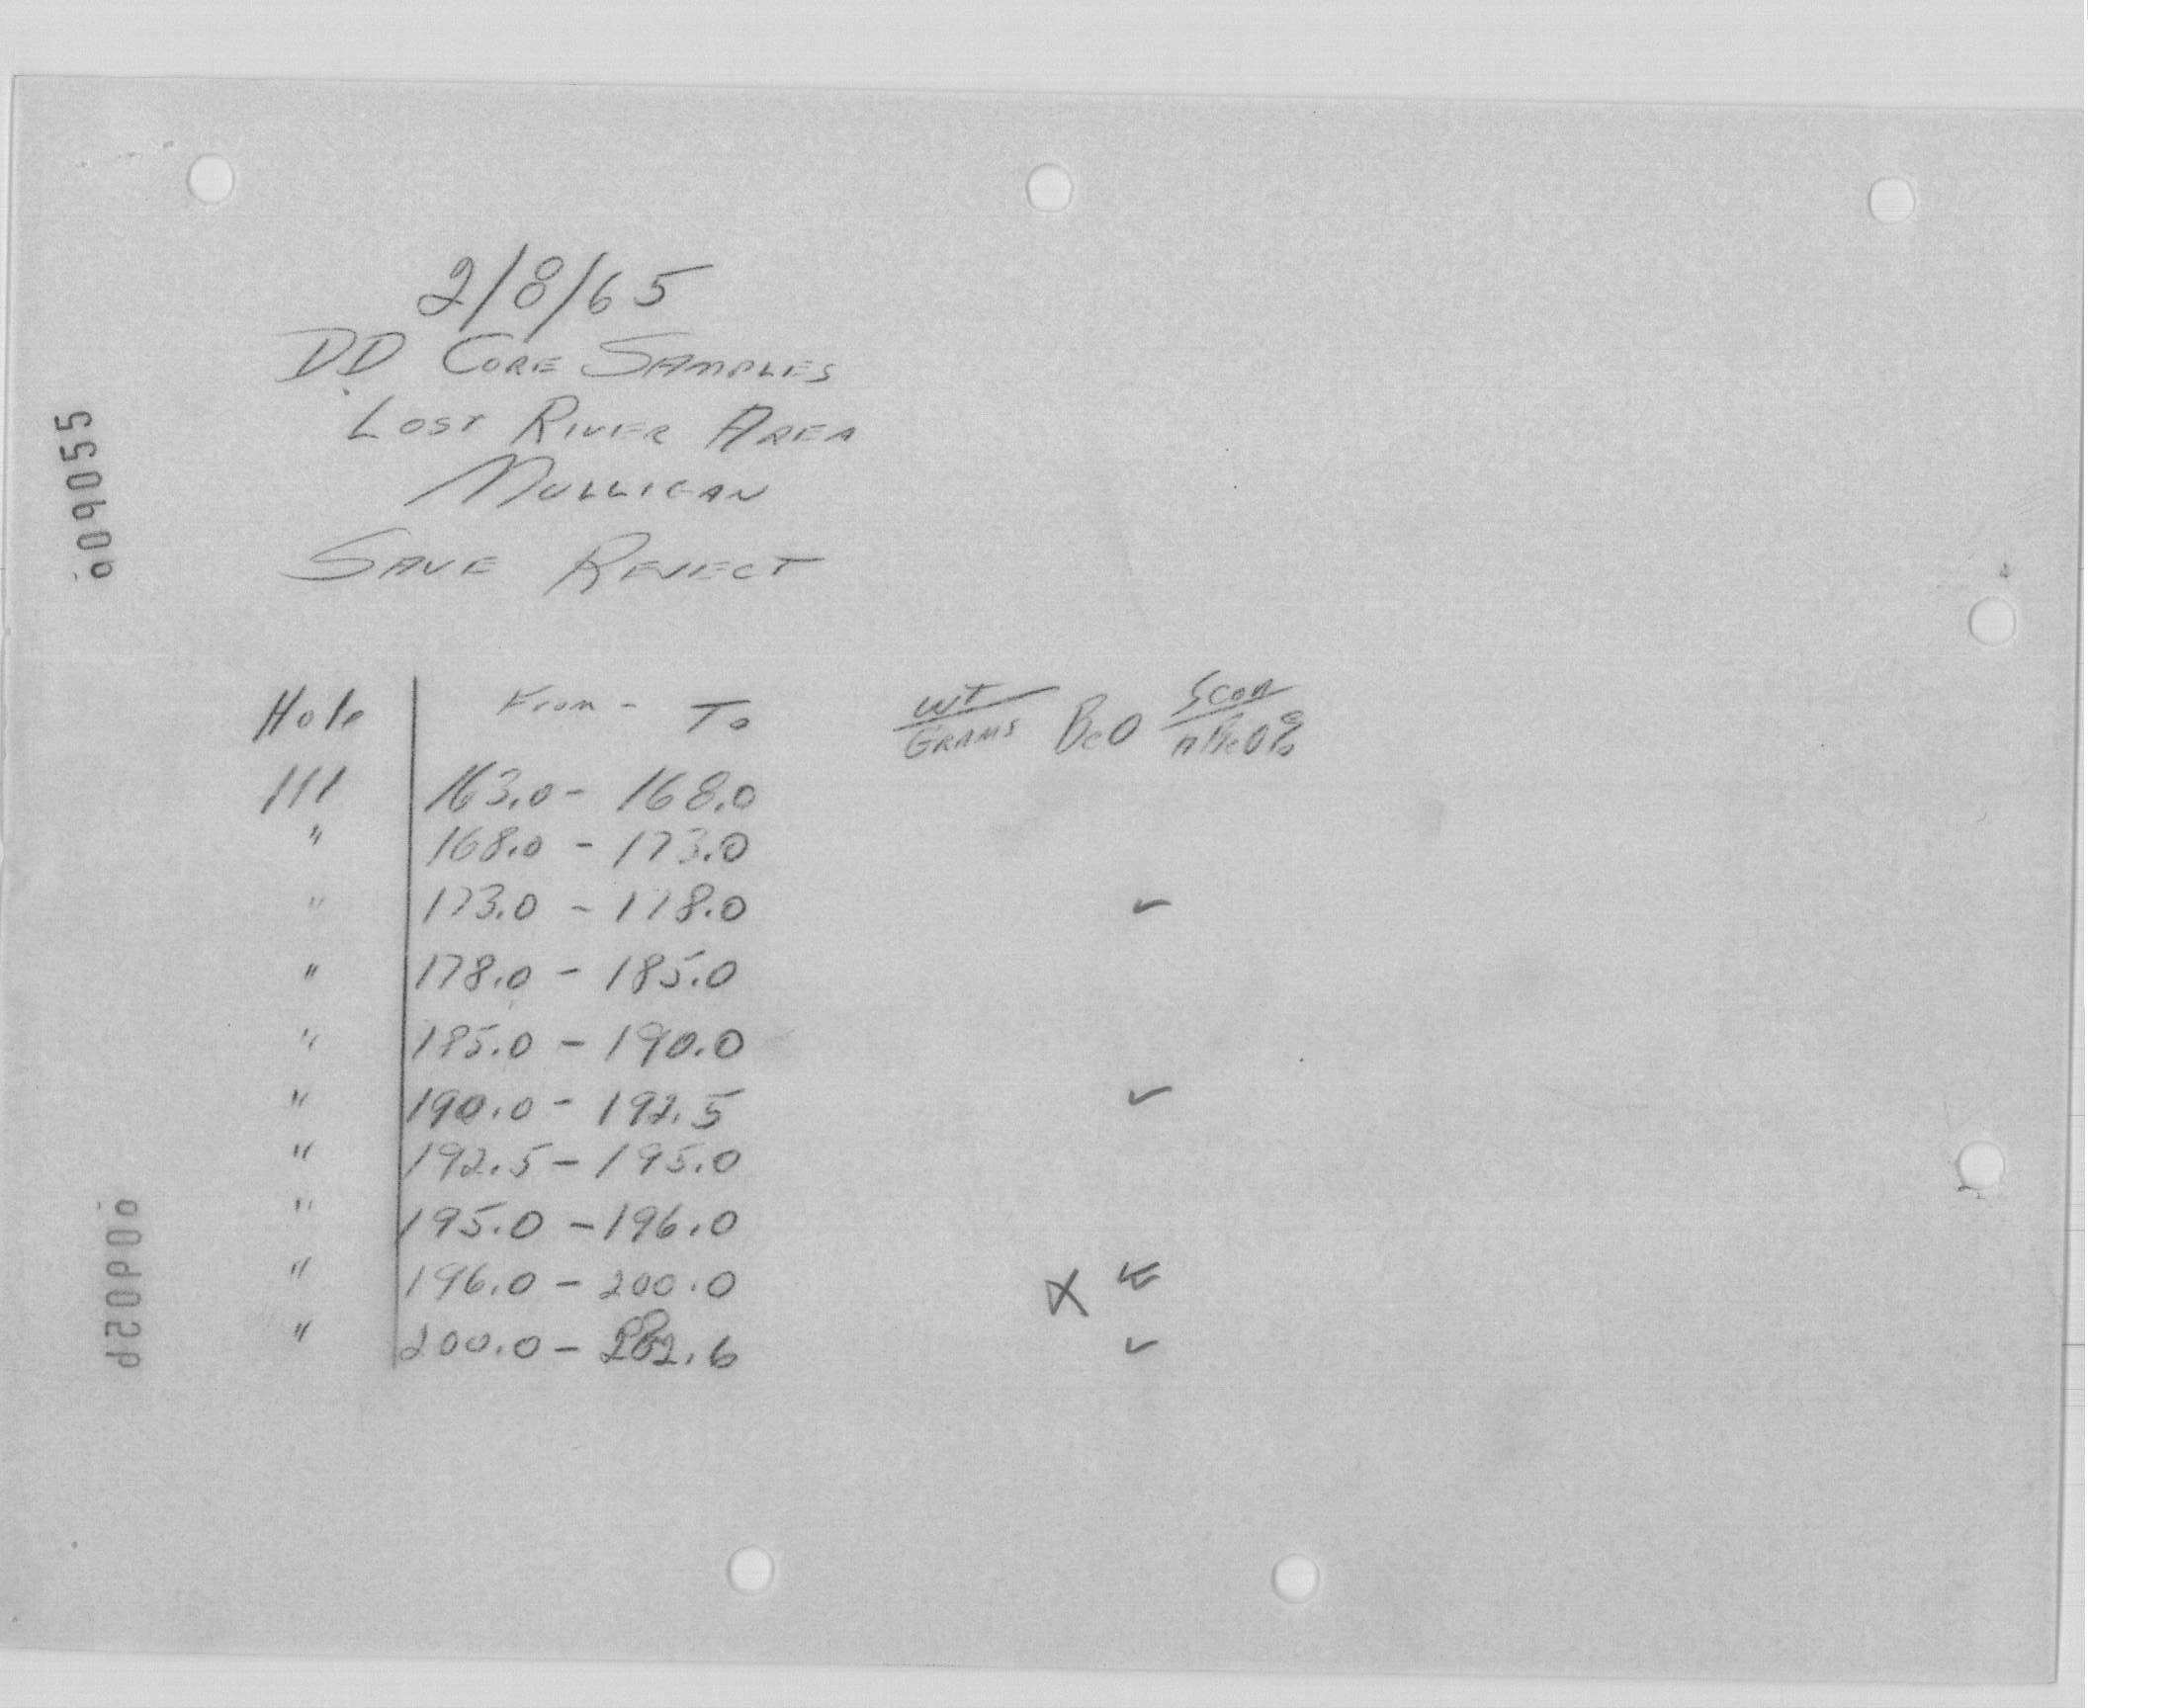 2/8/65
DD CORE SAMPLES
LOST RIVER AREA
MULLIGAN
SAVE REJECT
609055
Hole From - To WT/GRAMS BeO Scan
111 163.0 - 168.0
" 168.0 - 173.0
" 173.0 - 178.0 ✓
" 178.0 - 185.0
" 185.0 - 190.0
" 190.0 - 192.5 ✓
" 192.5 - 195.0
" 195.0 - 196.0
" 196.0 - 200.0 X ✓
" 200.0 - 202.6 ✓